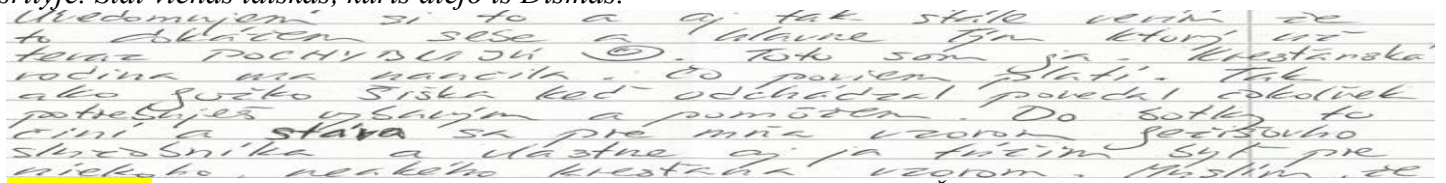 srityje. Štai vienas laiškas, kuris atėjo iš Dismas:
Uvedomujem si to a aj tak stále verím že
to dokážem sebe a hlavne tým ktorý už
teraz POCHYBUJÚ ☺. Toto som ja. Krestánska
rodina ma naučila. Čo poviem platí. Tak
ako Jožko Šiška keď odchádzal povedal čokoľvek
potrebuješ vybavým a pomôžem. Do bodky to
činí a stáva sa pre mňa vzorom Ježišovho
služobníka a vlastne aj ja túžim byť pre
niekoho, neakého krestana vzorom. Myslím, že